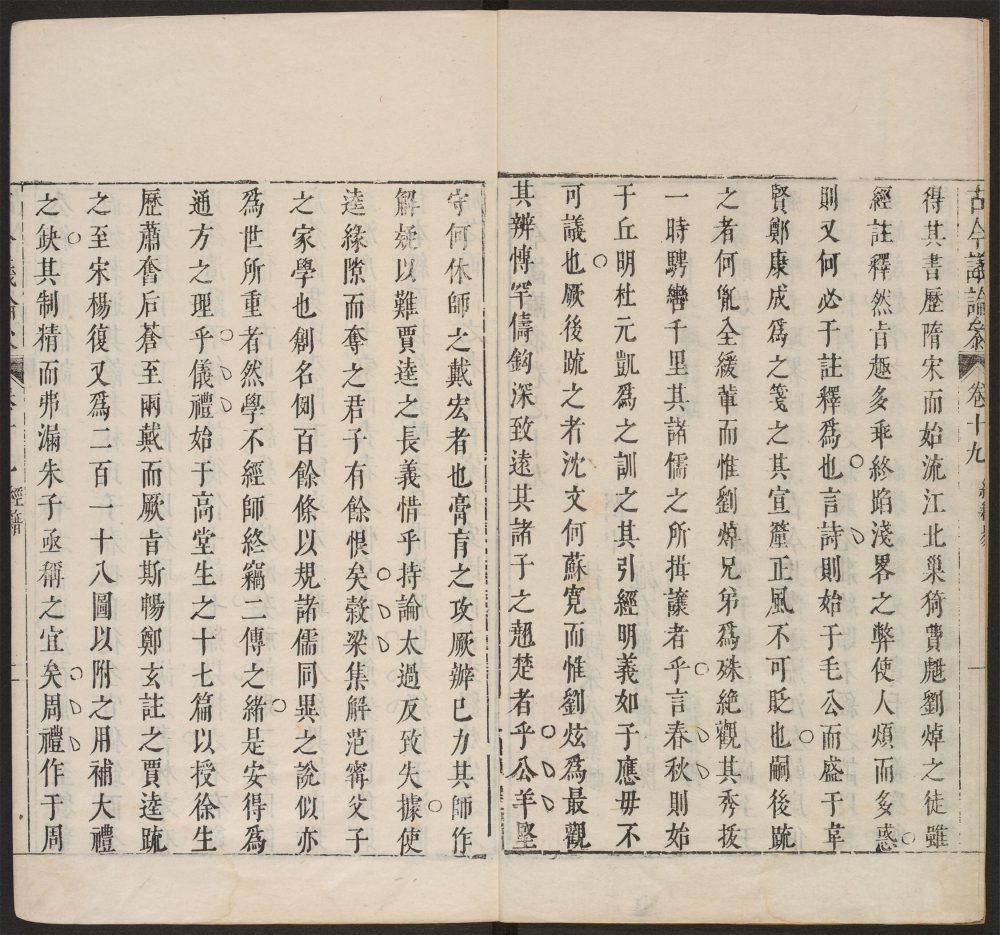 古今議論參 卷十九
得其書歷隋宋而始流江北巢猗費甝劉焯之徒雖
經註釋然㫖趣多乖終䧟淺畧之弊使人煩而多惑
則又何必于註釋爲也言詩則始于毛公而盛于韋
賢鄭康成爲之箋之其宣釐正風不可貶也嗣後䟽
之者何胤全緩輩而惟劉焯兄弟爲殊絶觀其秀拔
一時騁轡千里其諸儒之所揖讓者乎言春秋則始
于丘明杜元凱爲之訓之其引經明義如子應毋不
可議也厥後䟽之者沈文何蘇寛而惟劉炫爲最觀
其辨愽罕儔鈎深致遠其諸子之翹楚者乎公羊墅
守何休師之戴宏者也膏肓之攻厥辦巳力其師作
解疑以難賈逵之長義惜乎持論太過反致失據使
逵緣隙而奪之君子有餘恨矣榖梁集解范甯父子
之家學也創名例百餘條以規諸儒同異之說似亦
爲世所重者然學不經師終竊二傳之緒是安得爲
通方之理乎儀禮始于高堂生之十七篇以授徐生
歷蕭奮后蒼至兩戴而厥㫖斯暢鄭玄註之賈逵䟽
之至宋楊復又爲二百一十八圖以附之用補大禮
之缺其制精而弗漏朱子亟稱之宜矣周禮作于周
經籍